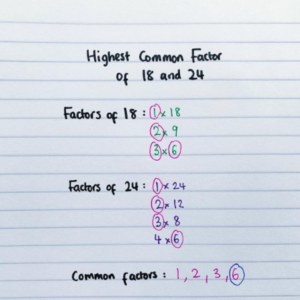 Highest Common Factor
of 18 and 24
Factors of 18 : 1 x 18
2 x 9
3 x 6
Factors of 24 : 1 x 24
2 x 12
3 x 8
4 x 6
Common factors : 1, 2, 3, 6